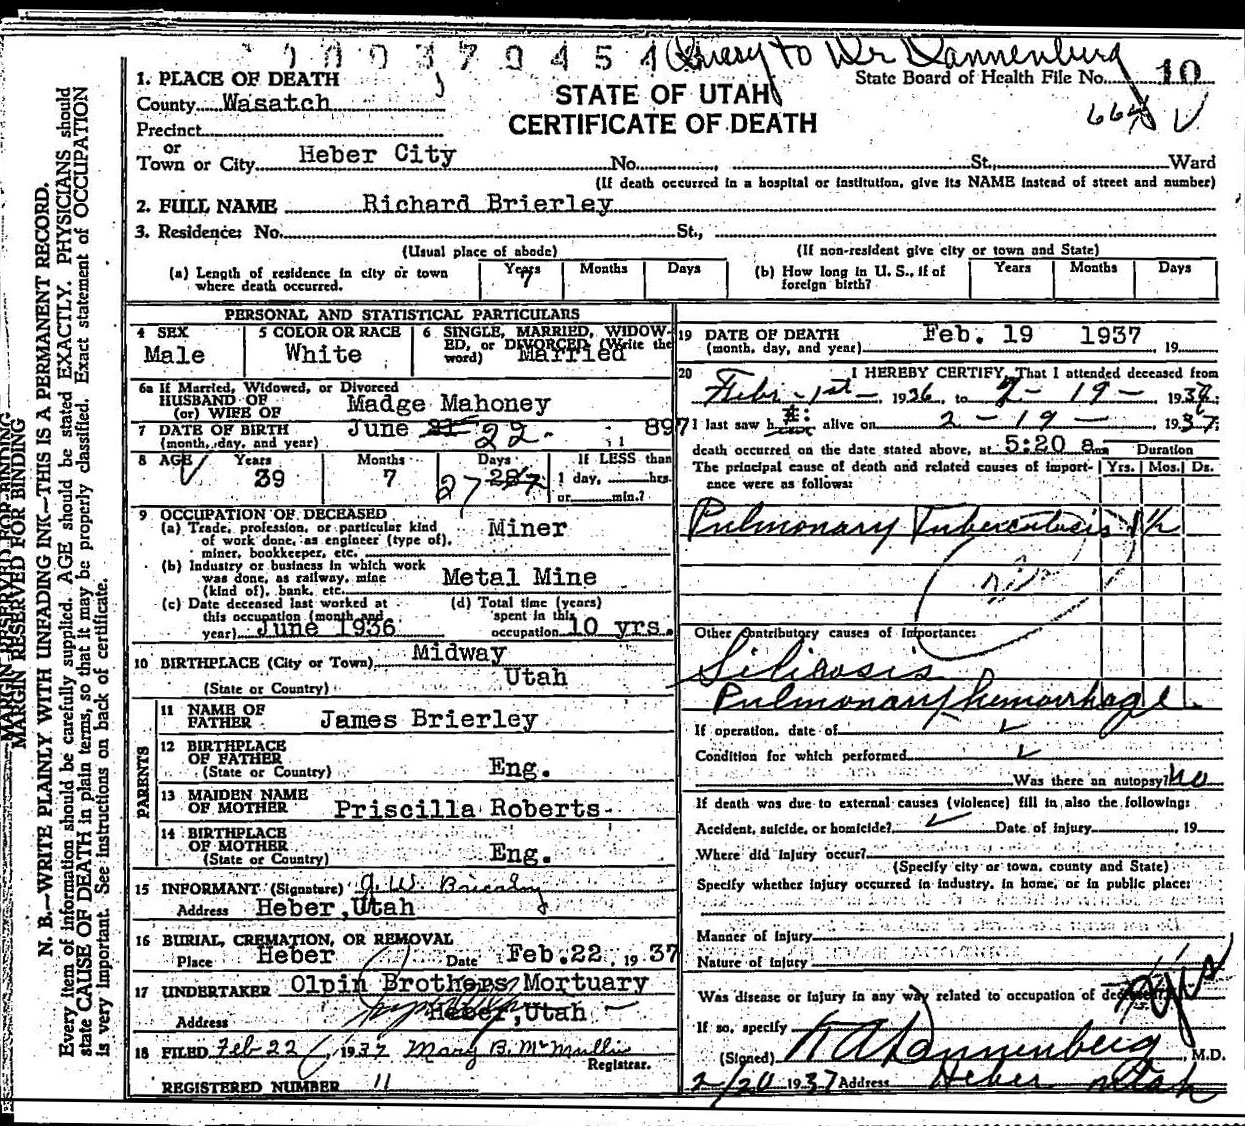 Query to Dr Dannenburg
1. PLACE OF DEATH
State Board of Health File No. 10
County Wasatch
STATE OF UTAH
CERTIFICATE OF DEATH
664
Precinct
or
Town or City Heber City No. St., Ward
(If death occurred in a hospital or institution, give its NAME instead of street and number)
2. FULL NAME Richard Brierley
3. Residence: No. St.,
(Usual place of abode) (If non-resident give city or town and State)
(a) Length of residence in city or town where death occurred. Years 7 Months Days
(b) How long in U. S., if of foreign birth? Years Months Days
PERSONAL AND STATISTICAL PARTICULARS
4 SEX Male
5 COLOR OR RACE White
6 SINGLE, MARRIED, WIDOWED, or DIVORCED (Write the word) Married
6a If Married, Widowed, or Divorced
HUSBAND OF
(or) WIFE OF Madge Mahoney
7 DATE OF BIRTH
(month, day, and year) June 21 22. 1897
8 AGE Years 39 Months 7 Days 27 If LESS than
1 day, hrs.
or min.?
9 OCCUPATION OF DECEASED
(a) Trade, profession, or particular kind
of work done, as engineer (type of),
miner, bookkeeper, etc. Miner
(b) Industry or business in which work
was done, as railway, mine
(kind of), bank, etc. Metal Mine
(c) Date deceased last worked at
this occupation (month and
year) June 1936
(d) Total time (years)
spent in this
occupation 10 yrs.
10 BIRTHPLACE (City or Town) Midway
(State or Country) Utah
PARENTS
11 NAME OF
FATHER James Brierley
12 BIRTHPLACE
OF FATHER
(State or Country) Eng.
13 MAIDEN NAME
OF MOTHER Priscilla Roberts
14 BIRTHPLACE
OF MOTHER
(State or Country) Eng.
15 INFORMANT (Signature) J. W. Brierley
Address Heber, Utah
16 BURIAL, CREMATION, OR REMOVAL
Place Heber Date Feb. 22, 1937
17 UNDERTAKER Olpin Brothers Mortuary
Address Heber, Utah
18 FILED Feb 22, 1937 Mary B. McMullin
Registrar.
REGISTERED NUMBER 11
19 DATE OF DEATH
(month, day, and year) Feb. 19 1937 19
20 I HEREBY CERTIFY, That I attended deceased from
Febr - 1st - 1936, to 2 - 19 - 1937
I last saw h alive on 2 - 19 - 1937
death occurred on the date stated above, at 5:20 a.m. Duration
The principal cause of death and related causes of importance were as follows: Yrs. Mos. Ds.
Pulmonary Tuberculosis 1 1/2
Other contributory causes of importance:
Silicosis
Pulmonary hemorrhage.
If operation, date of
Condition for which performed
Was there an autopsy? no
If death was due to external causes (violence) fill in also the following:
Accident, suicide, or homicide? Date of injury 19
Where did injury occur?
(Specify city or town, county and State)
Specify whether injury occurred in industry, in home, or in public place:
Manner of Injury
Nature of Injury
Was disease or injury in any way related to occupation of deceased? yes
If so, specify
(Signed) Dannenberg, M.D.
2/20 1937 Address Heber Utah
MARGIN RESERVED FOR BINDING
N. B.—WRITE PLAINLY WITH UNFADING INK—THIS IS A PERMANENT RECORD.
Every item of information should be carefully supplied. AGE should be stated EXACTLY. PHYSICIANS should
state CAUSE OF DEATH in plain terms, so that it may be properly classified. Exact statement of OCCUPATION
is very important. See instructions on back of certificate.